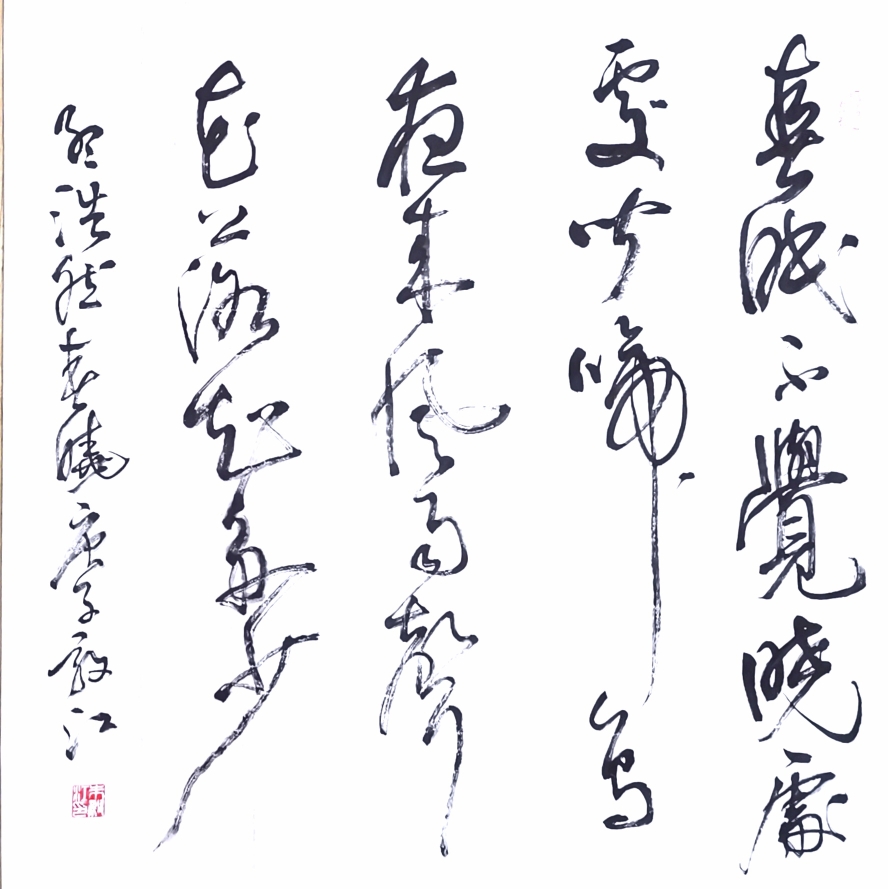 春眠不覺曉處
處聞啼鳥
夜来風雨聲
花落知多少
孟浩然春曉庚子江